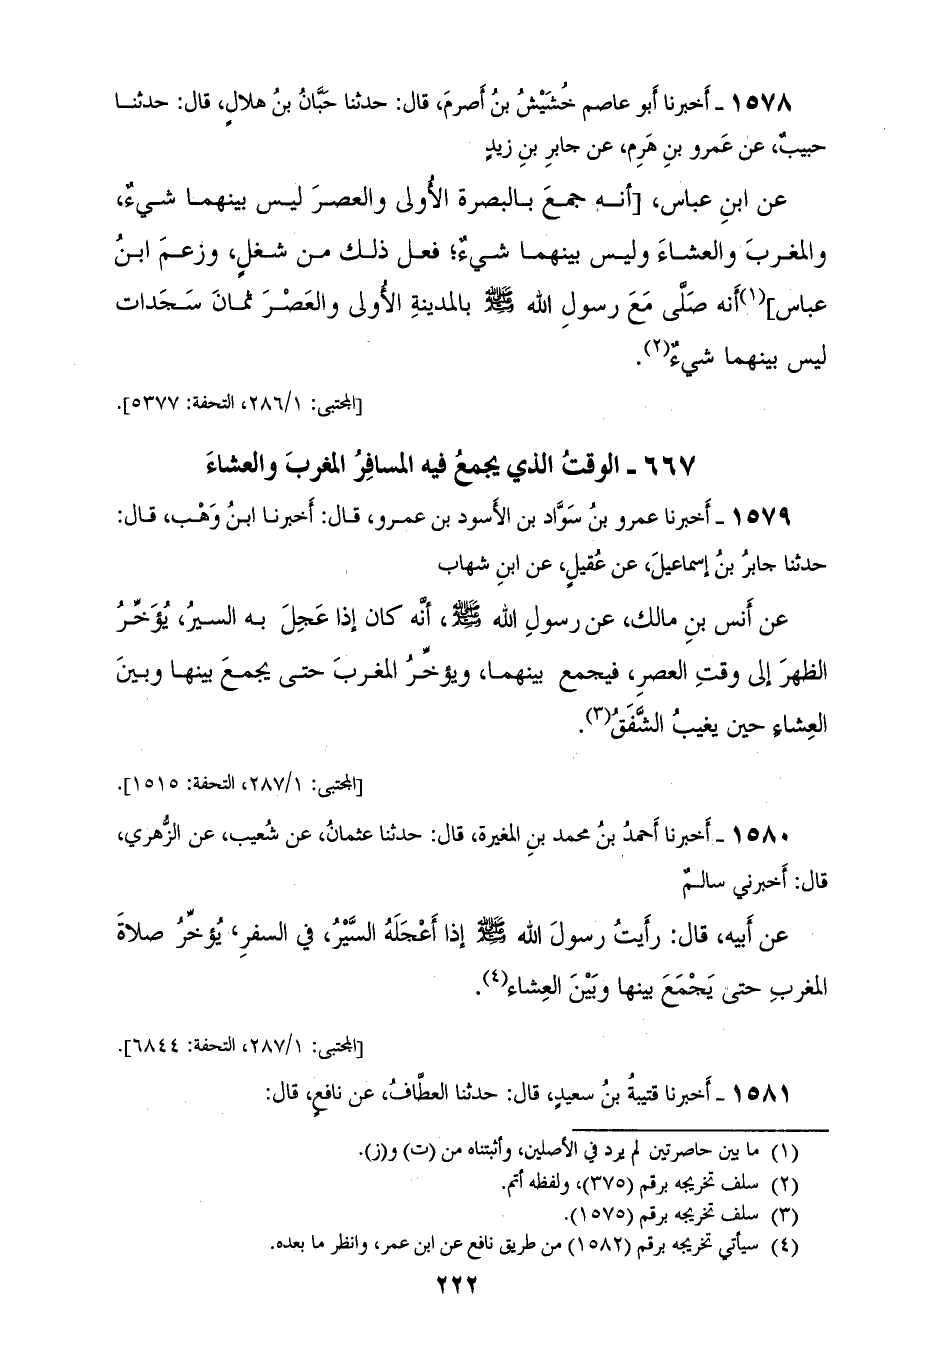 ١٥٧٨ ـ أخبرنا أبو عاصم خُشَيْشُ بنُ أَصرمَ، قال: حدثنا حَبَّانُ بنُ هلالٍ، قال: حدثنـا
حبيبٌ، عن عَمرو بنِ هَرِم، عن جابرِ بنِ زيدٍ
عن ابنِ عباس، [أنـه جمـعَ بـالبصرة الأُولى والعصرَ ليـس بينهمـا شـيءٌ،
والمغـربَ والعشـاءَ وليـس بينهمـا شـيءٌ؛ فعـل ذلـك مـن شـغلٍ، وزعـمَ ابـنُ
عباس](١)أنه صَلَّى مَعَ رسولِ الله ﷺ بالمدينةِ الأُولى والعَصْـرَ ثمـانَ سَـجَدات
ليس بينهما شيءٌ(٢).
[المجتبى: ٢٨٦/١، التحفة: ٥٣٧٧].
٦٦٧ ـ الوقتُ الذي يجمعُ فيه المسافِرُ المغربَ والعشاءَ
١٥٧٩ ـ أَخبرنا عمرو بنُ سَوَّاد بن الأَسود بن عمـرو، قـال: أَخبرنـا ابـنُ وَهْـب، قـال:
حدثنا جابرُ بنُ إسماعيلَ، عن عُقيلٍ، عن ابنِ شهاب
عن أَنس بنِ مالك، عن رسولِ الله ﷺ، أنَّه كان إذا عَجِلَ به السـيرُ، يُؤَخِّـرُ
الظهرَ إلى وقتِ العصرِ، فيجمع بينهمـا، ويؤخِّـرُ المغـربَ حتـى يجمـعَ بينهـا وبـينَ
العِشاءِ حين يغيبُ الشَّفَقُ(٣).
[المجتبى: ٢٨٧/١، التحفة: ١٥١٥].
١٥٨٠ ـ أَخبرنا أَحمدُ بنُ محمد بنِ المغيرة، قال: حدثنا عثمانُ، عن شُعيب، عن الزُّهري،
قال: أَخبرني سالـمٌ
عن أَبيه، قال: رأَيتُ رسولَ الله ﷺ إذا أَعْجَلَهُ السَّيْرُ، في السفرِ، يُؤخِّرُ صلاةَ
المغربِ حتى يَجْمَعَ بينها وبَيْنَ العِشاء(٤).
[المجتبى: ٢٨٧/١، التحفة: ٦٨٤٤].
١٥٨١ ـ أَخبرنا قتيبةُ بنُ سعيدٍ، قال: حدثنا العطَّافُ، عن نافعٍ، قال:
(١) ما بين حاصرتين لم يرد في الأصلين، وأثبتناه من (ت) و(ز).
(٢) سلف تخريجه برقم (٣٧٥)، ولفظه أتم.
(٣) سلف تخريجه برقم (١٥٧٥).
(٤) سيأتي تخريجه برقم (١٥٨٢) من طريق نافع عن ابن عمر، وانظر ما بعده.
٢٢٢